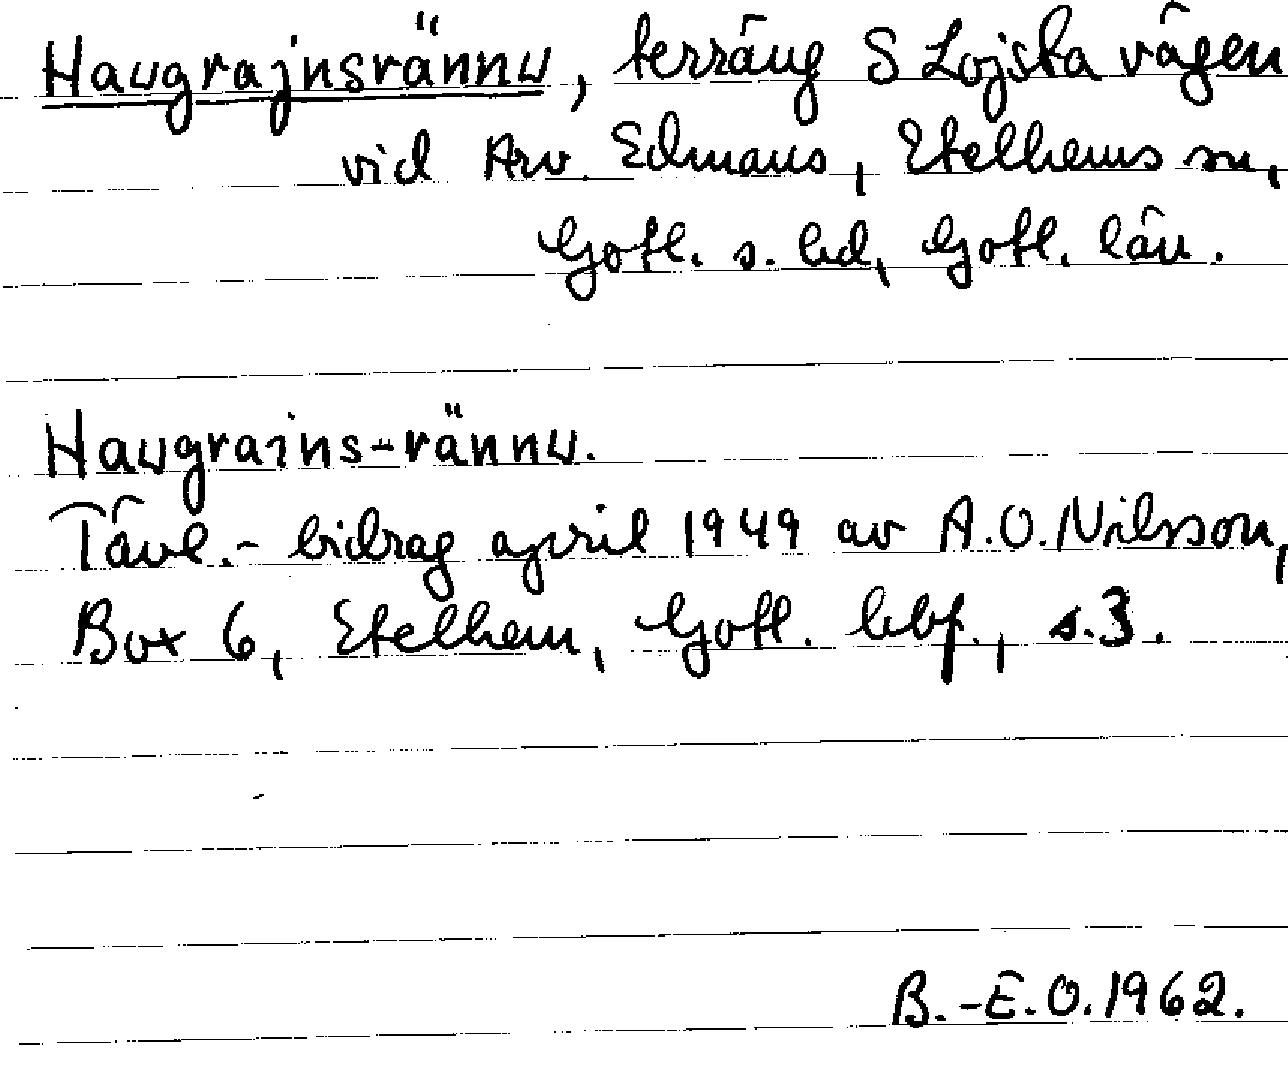 Haugrajnsrännu, terräng S Lojsta vägen
vid Arv. Edmans, Etelhems sn,
Gotl. s. hd, Gotl. län.
Haugrains-rännu.
Tävl.- bidrag april 1949 av A.O. Nilsson,
Box 6, Etelhem, Gotl. bbf., s.3.
B.-E.O. 1962.